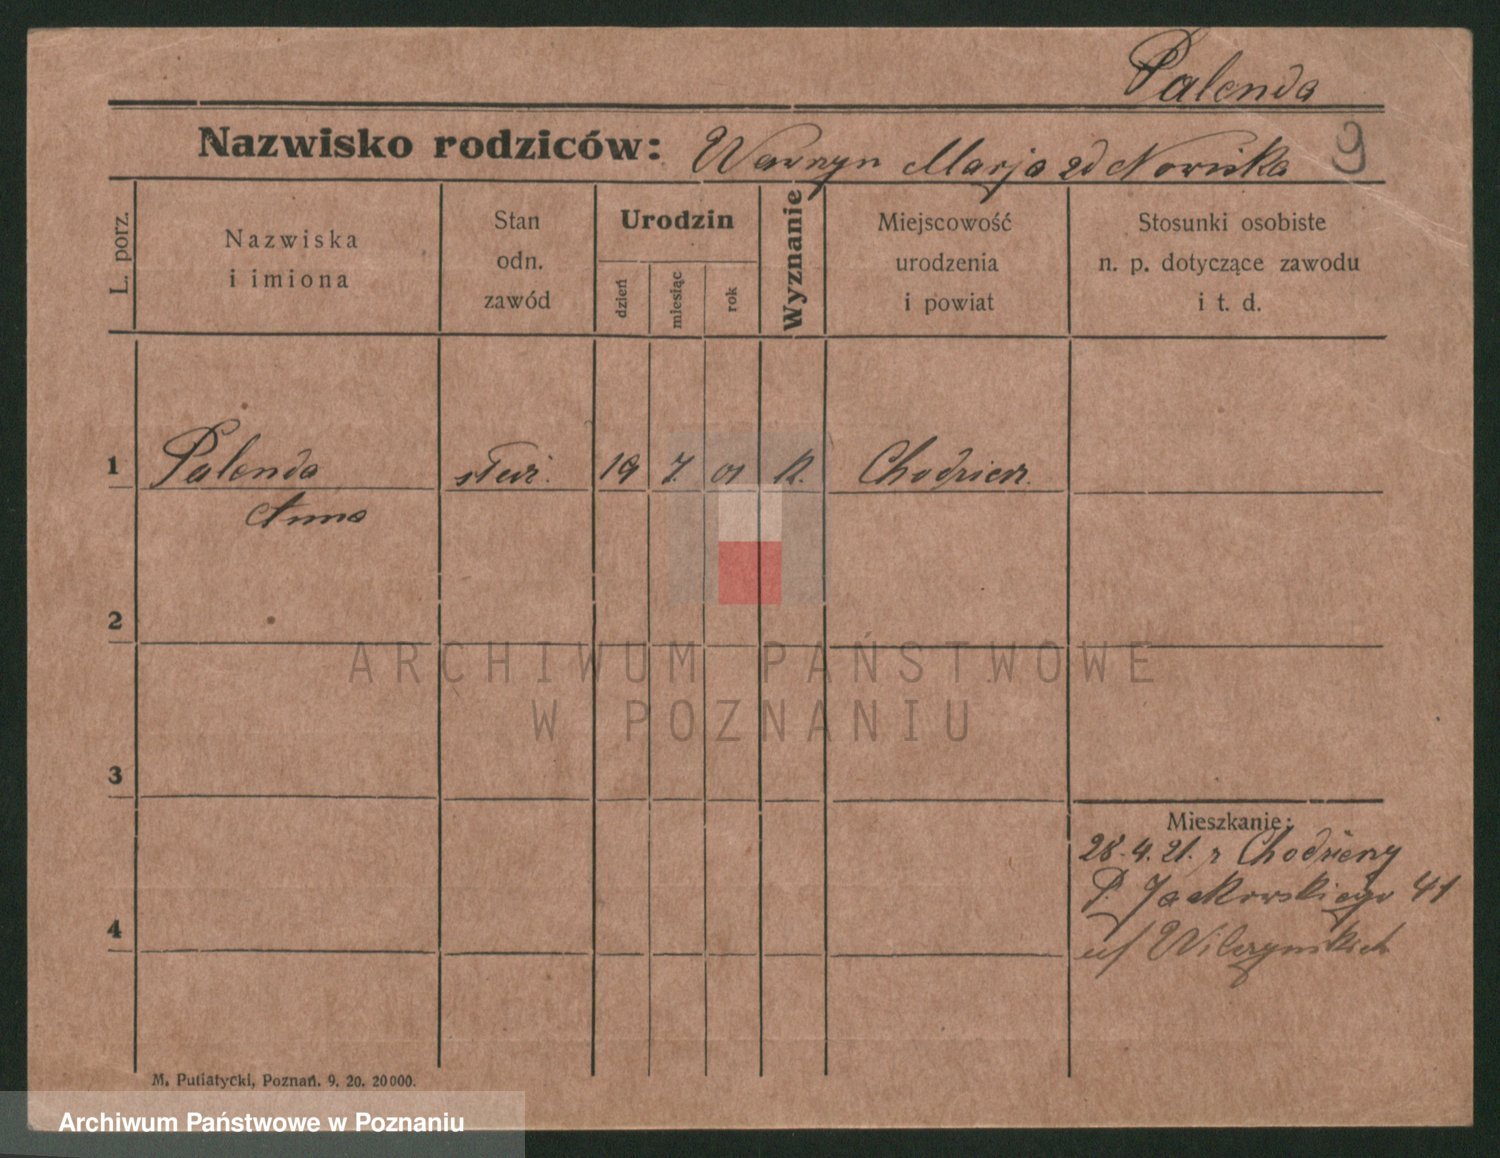 Palenda
Nazwisko rodziców: Wawrzyn Marja zd Nowicka 9
L. porz.
Nazwiska
i imiona
Stan
odn.
zawód
Urodzin
dzień
miesiąc
rok
Wyznanie
Miejscowość
urodzenia
i powiat
Stosunki osobiste
n. p. dotyczące zawodu
i t. d.
1 Palenda służ. 19 7. 01 K. Chodzież.
Anna
2
ARCHIWUM PAŃSTWOWE
W POZNANIU
3
Mieszkanie:
28.4.21. z Chodzieży
P. Jackowskiego 41
4
u/ Wilczyńskich
M. Putiatycki, Poznań. 9. 20. 20000.
Archiwum Państwowe w Poznaniu